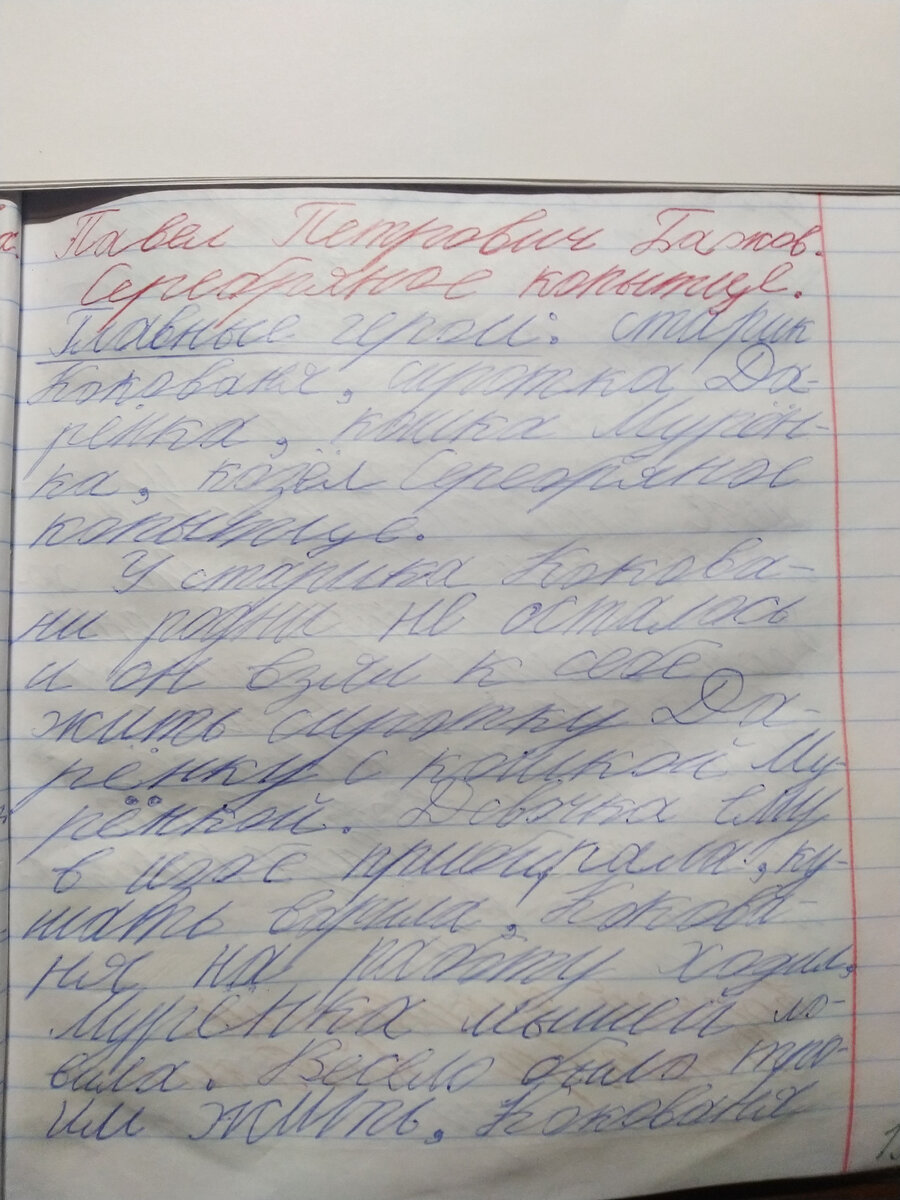 Павел Петрович Бажов.
Серебряное копытце.
Главные герои: старик
Кокованя, сиротка Да-
рёнка, кошка Мурён-
ка, козёл Серебряное
копытце.
У старика Кокова-
ни родни не осталось
и он взял к себе
жить сиротку Да-
рёнку с кошкой Му-
рёнкой. Девочка ему
в избе прибирала, ку-
шать варила, Кокова-
ня на работу ходил,
Мурёнка мышей ло-
вила. Весело было тро-
им жить, Кокованя